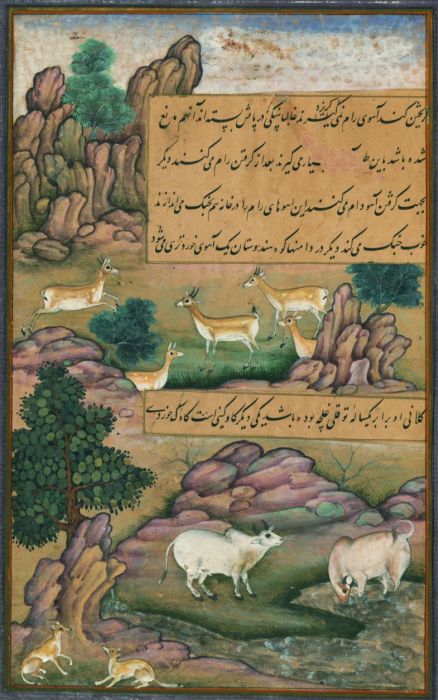 گرفتن کنند آهوی رام نمی گریزد غالبا سنگی در پاش بسته اند آن هم مانع
شده باشد باین طریق بسیاری گیرند بعد از گرفتن رام می کنند دیگر
بجهت گرفتن آهو دام می کنند این آهوهای رام را در خانه هم بجنک می اندازند
خوب جنک می کند دیگر در دامنهاکوه هندوستان یک آهوی خوردتری می شود
کلانی او برابر یکساله توقلی غلچه بوده باشد یکی دیگر کاو کینی است کاو